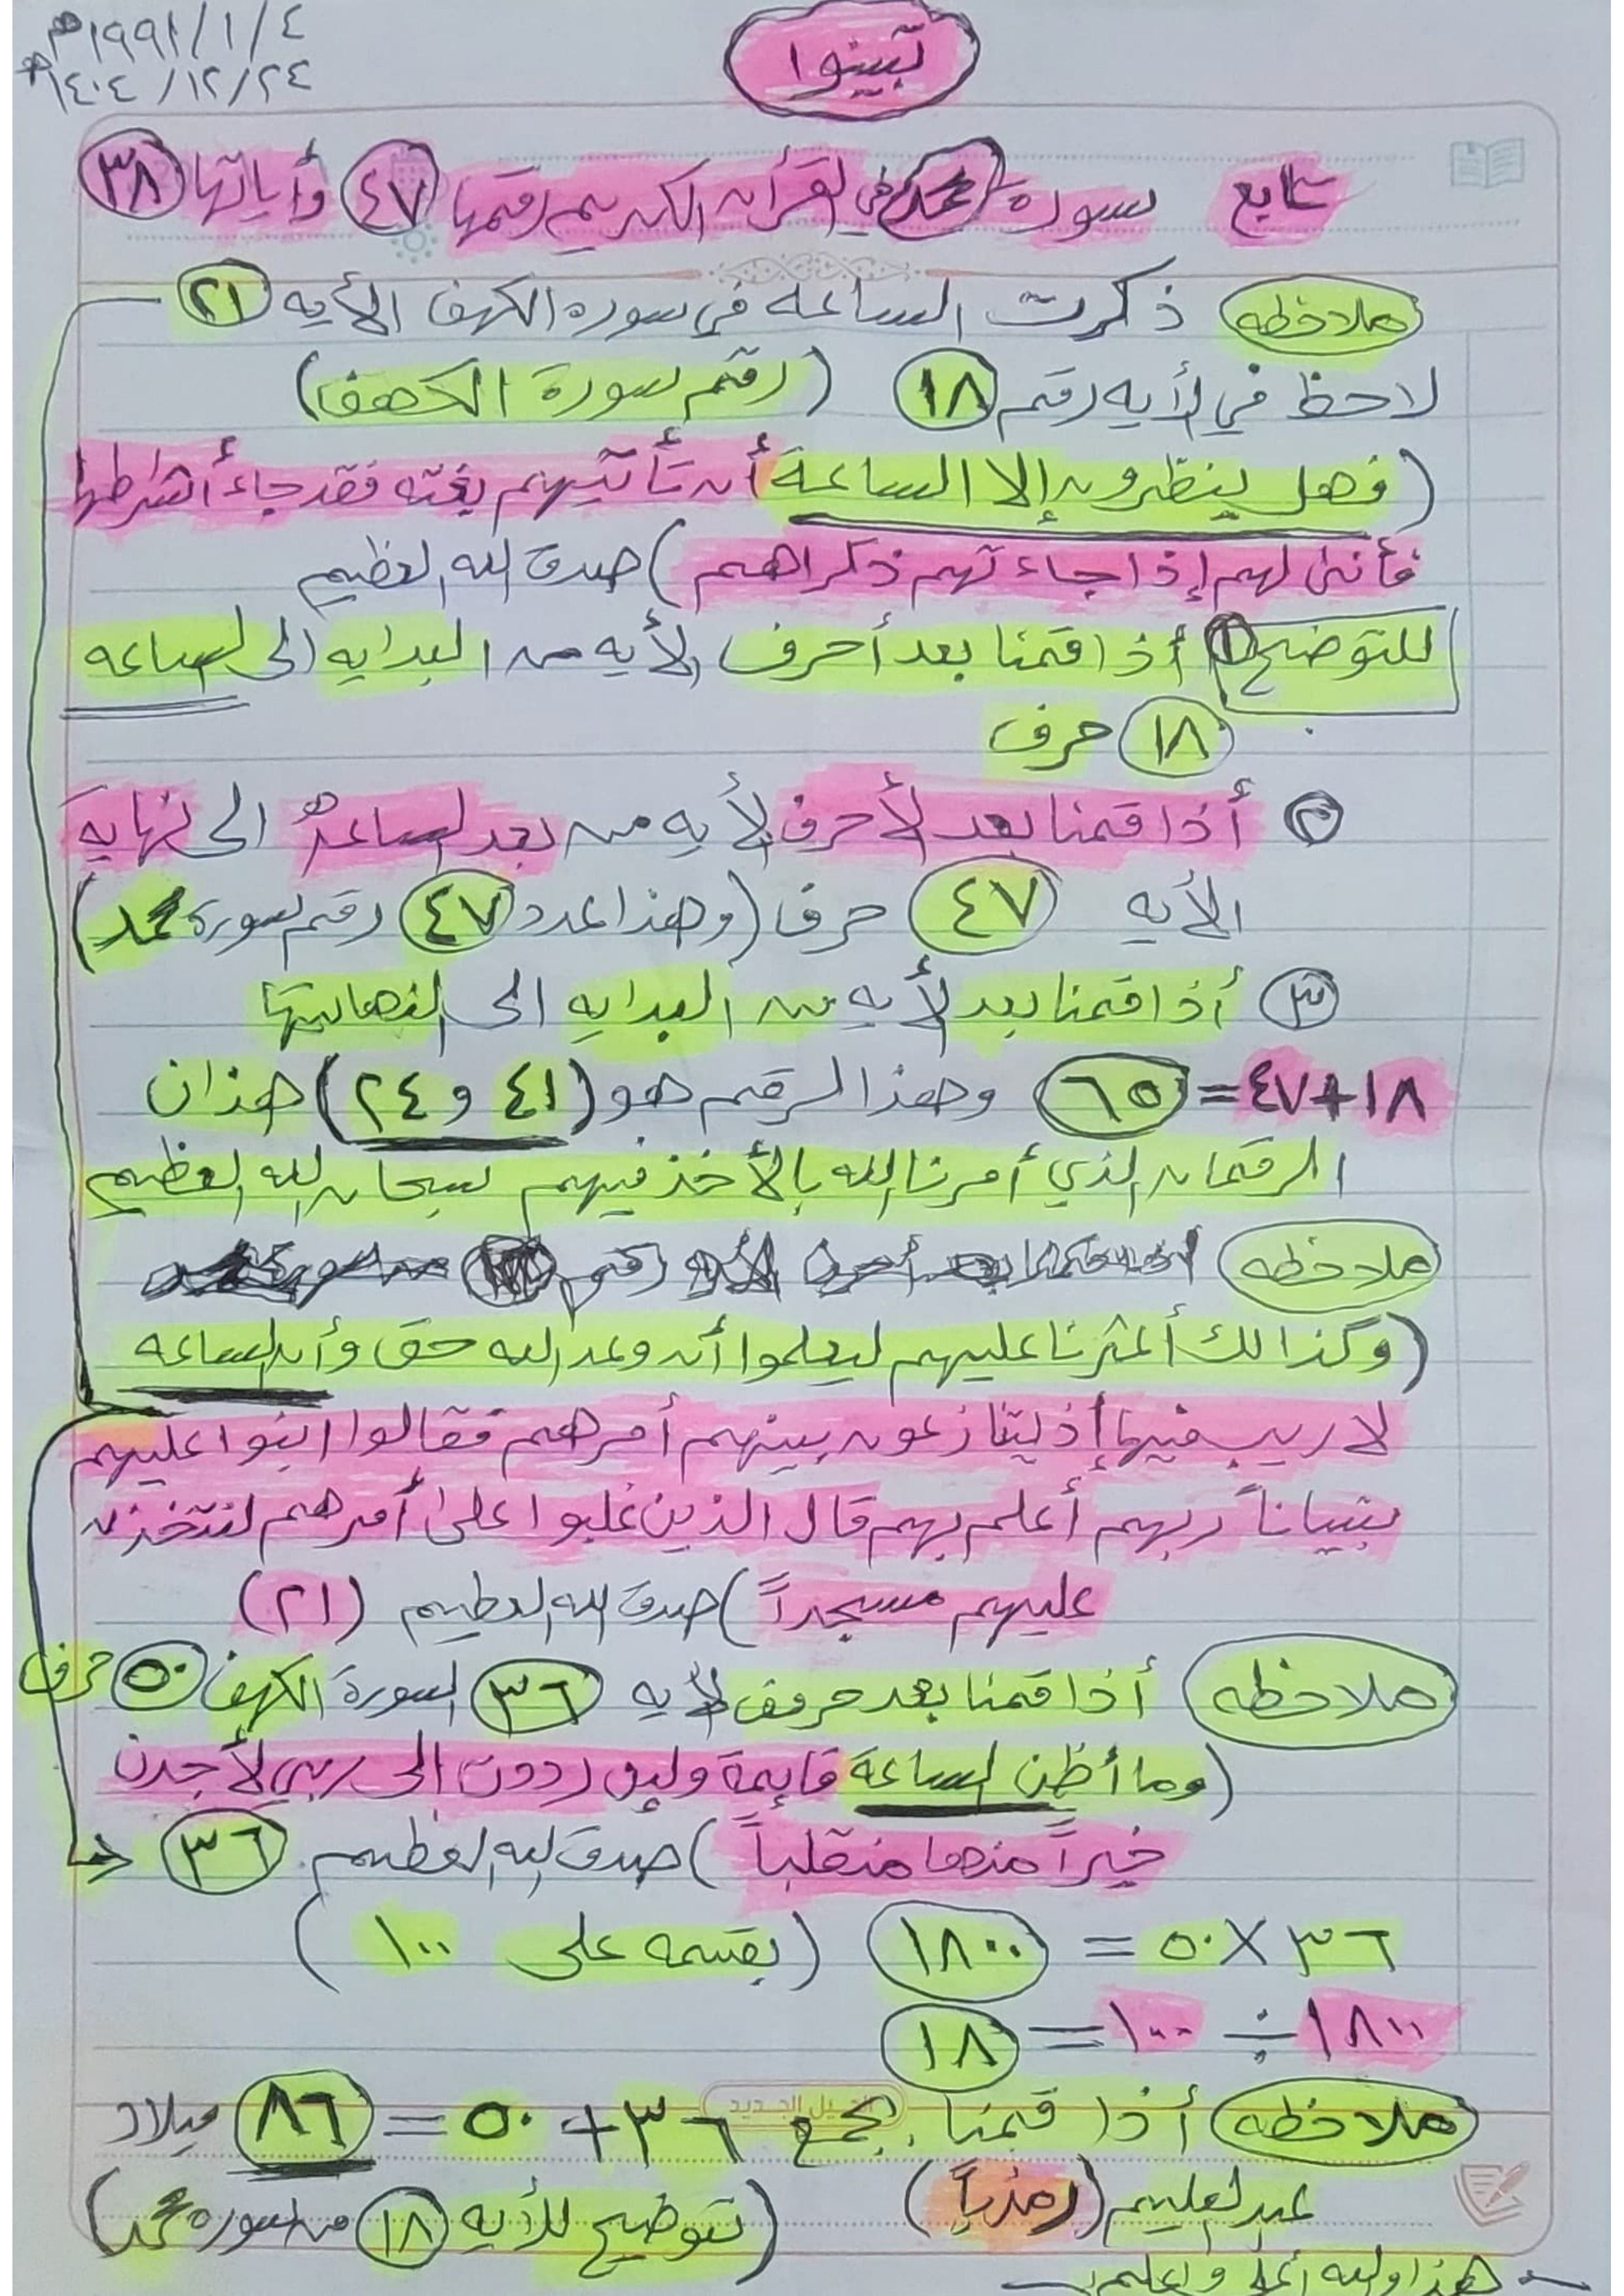 ٤/١/١٩٩١م
٢٤/١٢/١٤٠٤ه
تبينوا
تابع سورة محمد في القرأن الكريم رقمها ٤٧ وأياتها ٣٨
ملاحظه ذكرت الساعه في سوره الكهف الأيه ٢١
لاحظ في الأيه رقم ١٨ (رقم سورة الكهف)
(فهل ينظرون إلا الساعة أن تأتيهم بغته فقد جاء أشرطها
فأنى لهم إذا جاءتهم ذكراهم) صدق الله العظيم
للتوضيح ١ أذا قمنا بعد أحرف الأيه من البدايه الى الساعه
١٨ حرف
٢ أذا قمنا بعد الأحرف الأيه من بعد الساعة الى نهاية
الأيه ٤٧ حرف (وهذا العدد ٤٧ رقم سورة محمد)
٣ أذا قمنا بعد الأيه من البدايه الى النهايتها
١٨+٤٧=٦٥ وهذا الرقم هو (٤١ و ٢٤) هذان
الرقمان الذي أمرنا الله بالأخذ فيهم سبحان الله العظيم
ملاحظه
(وكذالك أعثرنا عليهم ليعلموا أن وعد الله حق وأن الساعه
لا ريب فيها إذ يتنازعون بينهم أمرهم فقالوا ابنوا عليهم
بنياناً ربهم أعلم بهم قال الذين غلبوا على أمرهم لنتخذن
عليهم مسجداً) صدق الله العظيم (٢١)
ملاحظه أذا قمنا بعد حروف الأيه ٣٦ لسورة الكهف ٥٠ حرف
(وما أظن الساعة قايمة ولين رددت الى ربي لأجدن
خيراً منها منقلباً) صدق الله العظيم ٣٦
٣٦ X ٥٠ = ١٨٠٠ (بقسمه على ١٠٠)
١٨٠٠ ÷ ١٠٠ = ١٨
ملاحظه أذا قمنا بجمع ٣٦+٥٠=٨٦ ميلاد
عبد العليم (رمزياً) (توضيح للأيه ١٨ من سوره محمد)
هذا والله أعلا واعلم